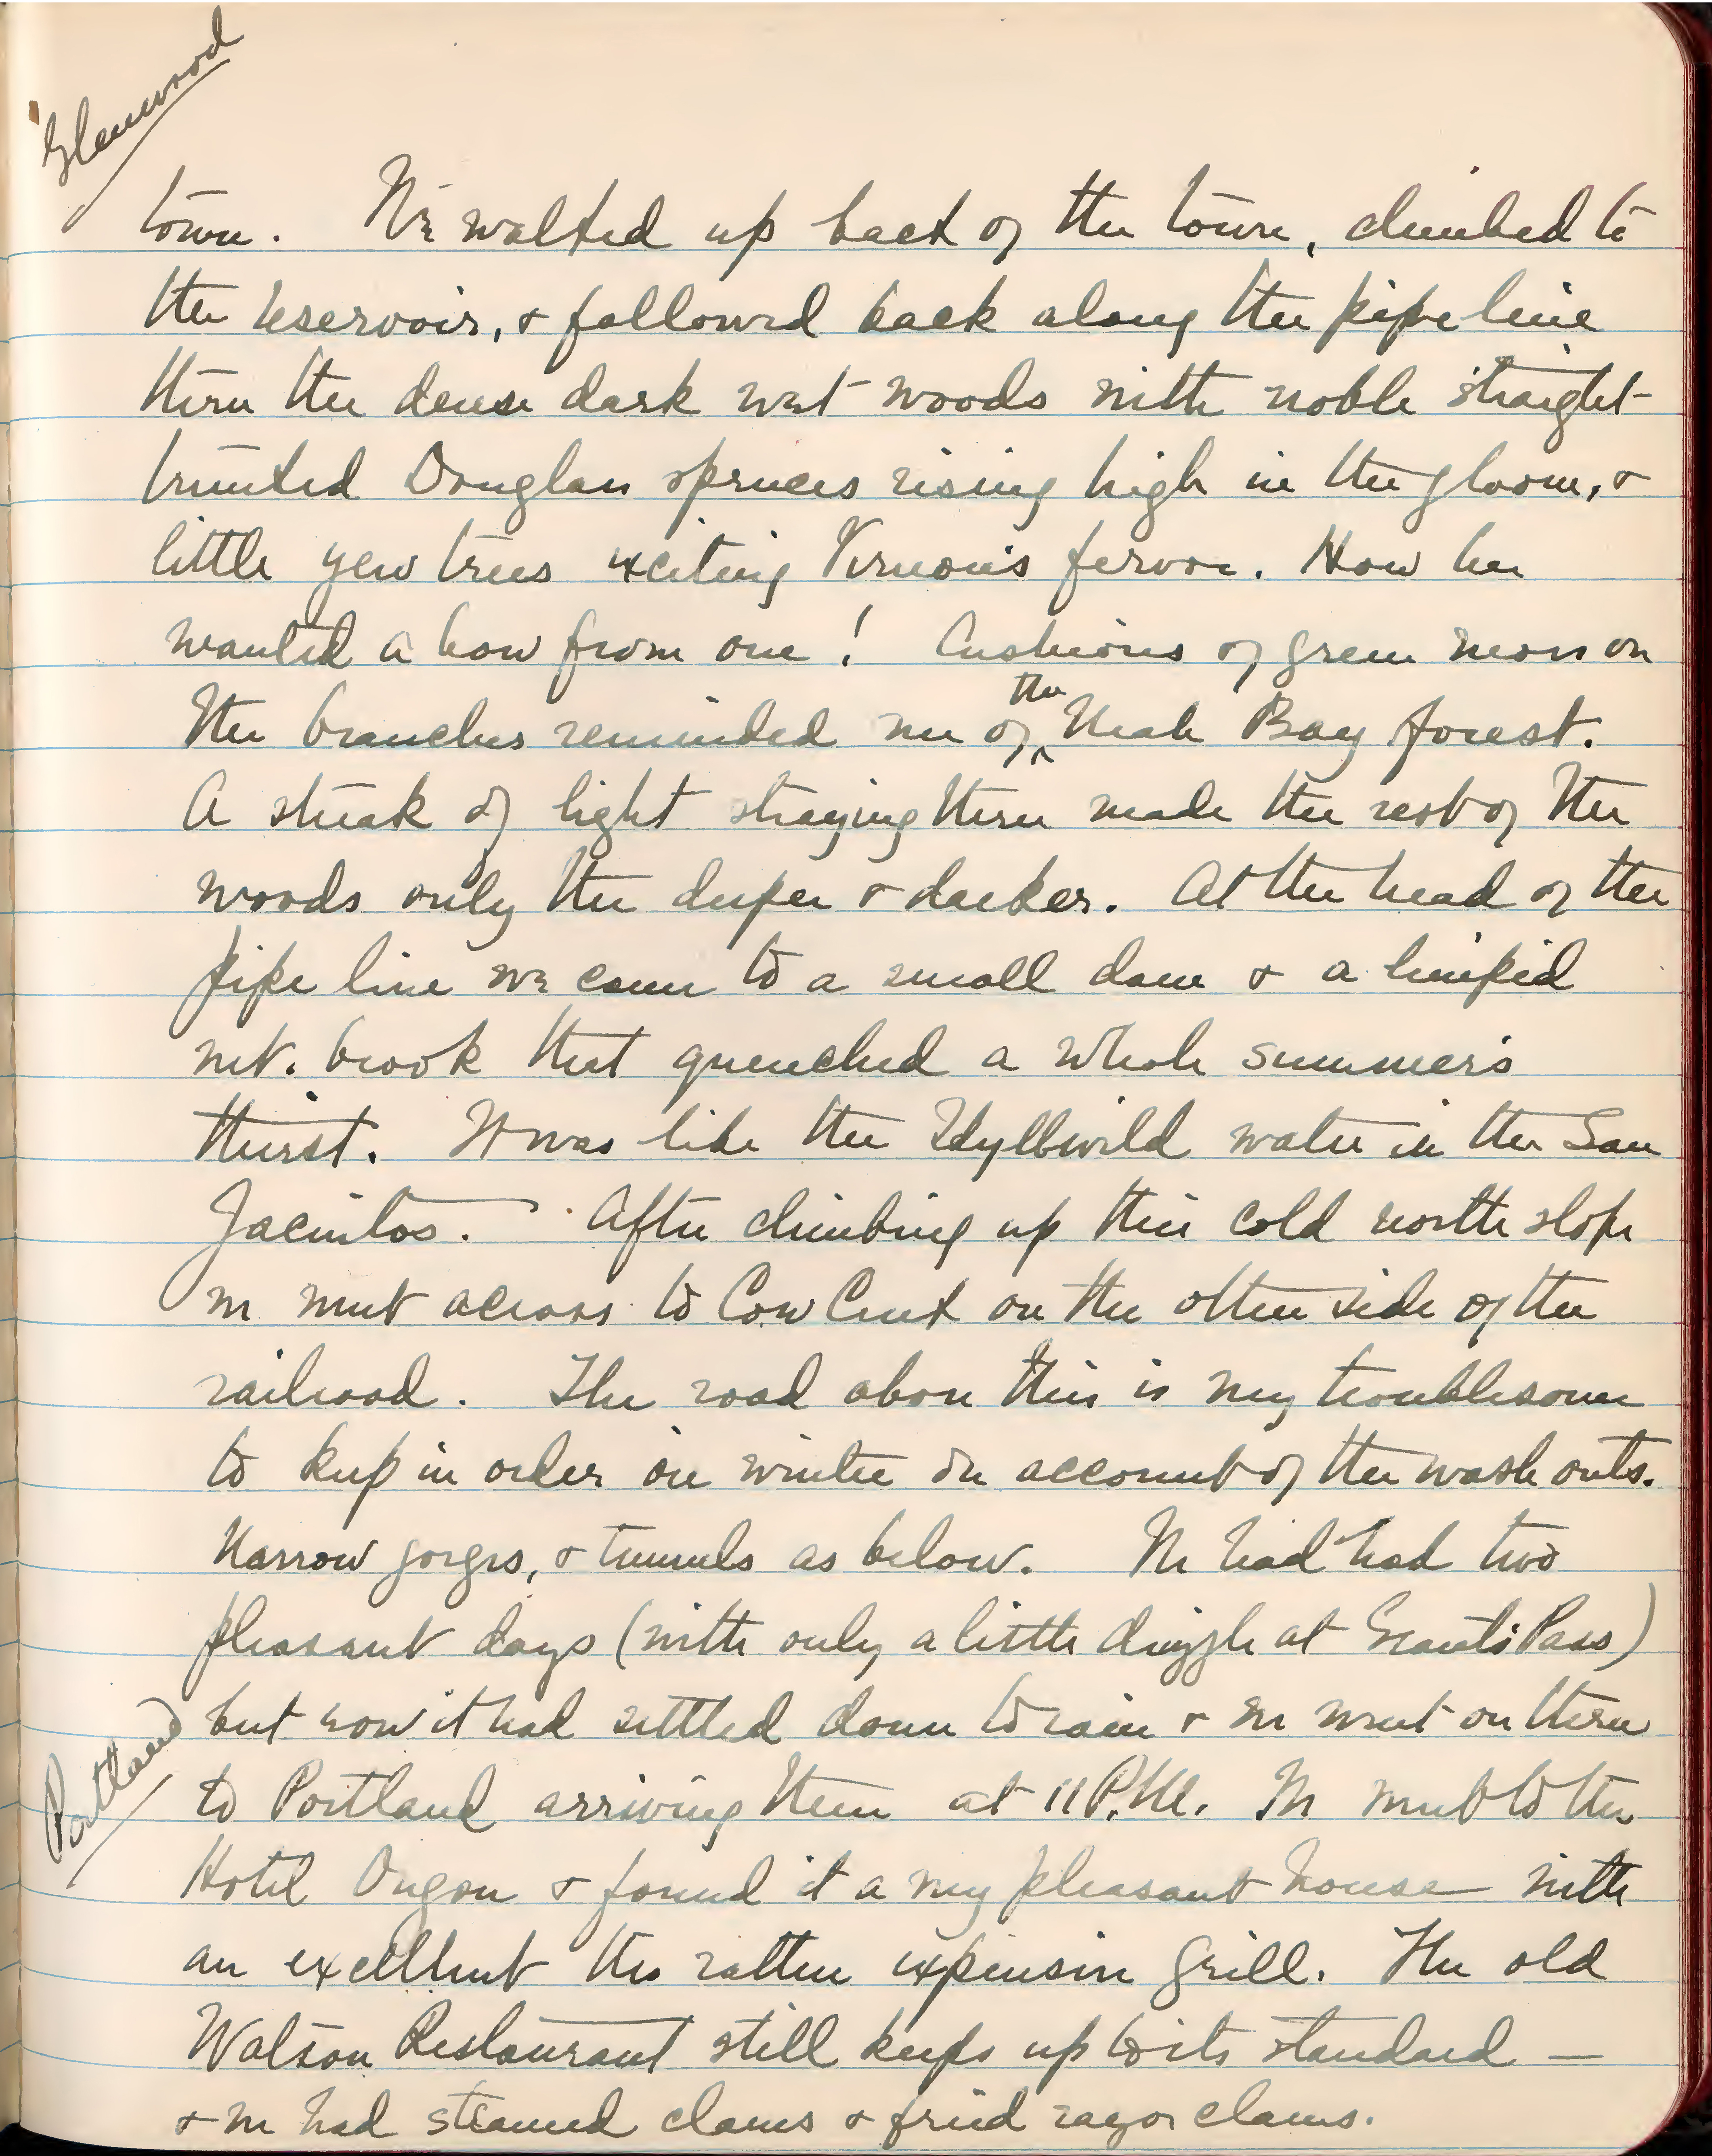 Glenwood
town. We walked up back of the town, climbed to
the reservoir, & followed back along the pipe line
thru the dense dark wet woods with noble straight-
trunked Douglas spruces rising high in the gloom, &
little yew trees exciting Vernon's fervor. How he
wanted a bow from one! Cushions of green moss on
the branches reminded me of the Neah Bay forest.
A streak of light straying thru made the rest of the
woods only the deeper & darker. At the head of the
pipe line we came to a small dam & a limpid
mt. brook that quenched a whole summer's
thirst. It was like the Idyllwild water in the San
Jacintos. After climbing up this cold north slope
we went across to Cow Creek on the other side of the
railroad. The road above this is very troublesome
to keep in order in winter on account of the wash outs.
Narrow gorges, & tunnels as below. We had had two
pleasant days (with only a little drizzle at Grants Pass)
but now it had settled down to rain & we went on thru
Portland
to Portland arriving there at 11 P.M. We went to the
Hotel Oregon & found it a very pleasant house with
an excellent tho rather expensive grill. The old
Watson Restaurant still keeps up to its standard —
& we had steamed clams & fried razor clams.